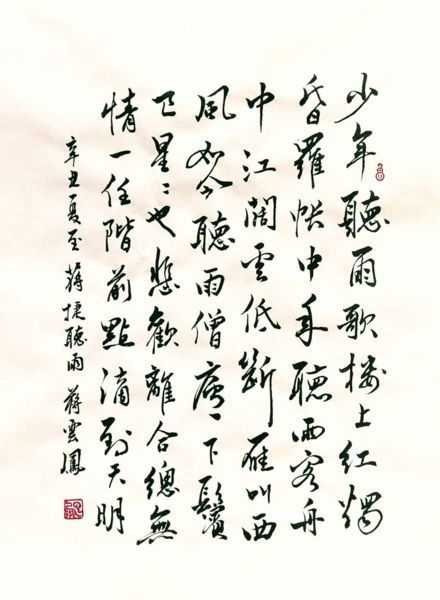 少年聽雨歌楼上紅燭
昏羅帳中年聽雨客舟
中江闊雲低斷雁叫西
風如今聽雨僧廬下鬢
已星〻也悲歡離合總無
情一任階前點滴到天明
辛丑夏至蔣捷聽雨 蔣雲鳳